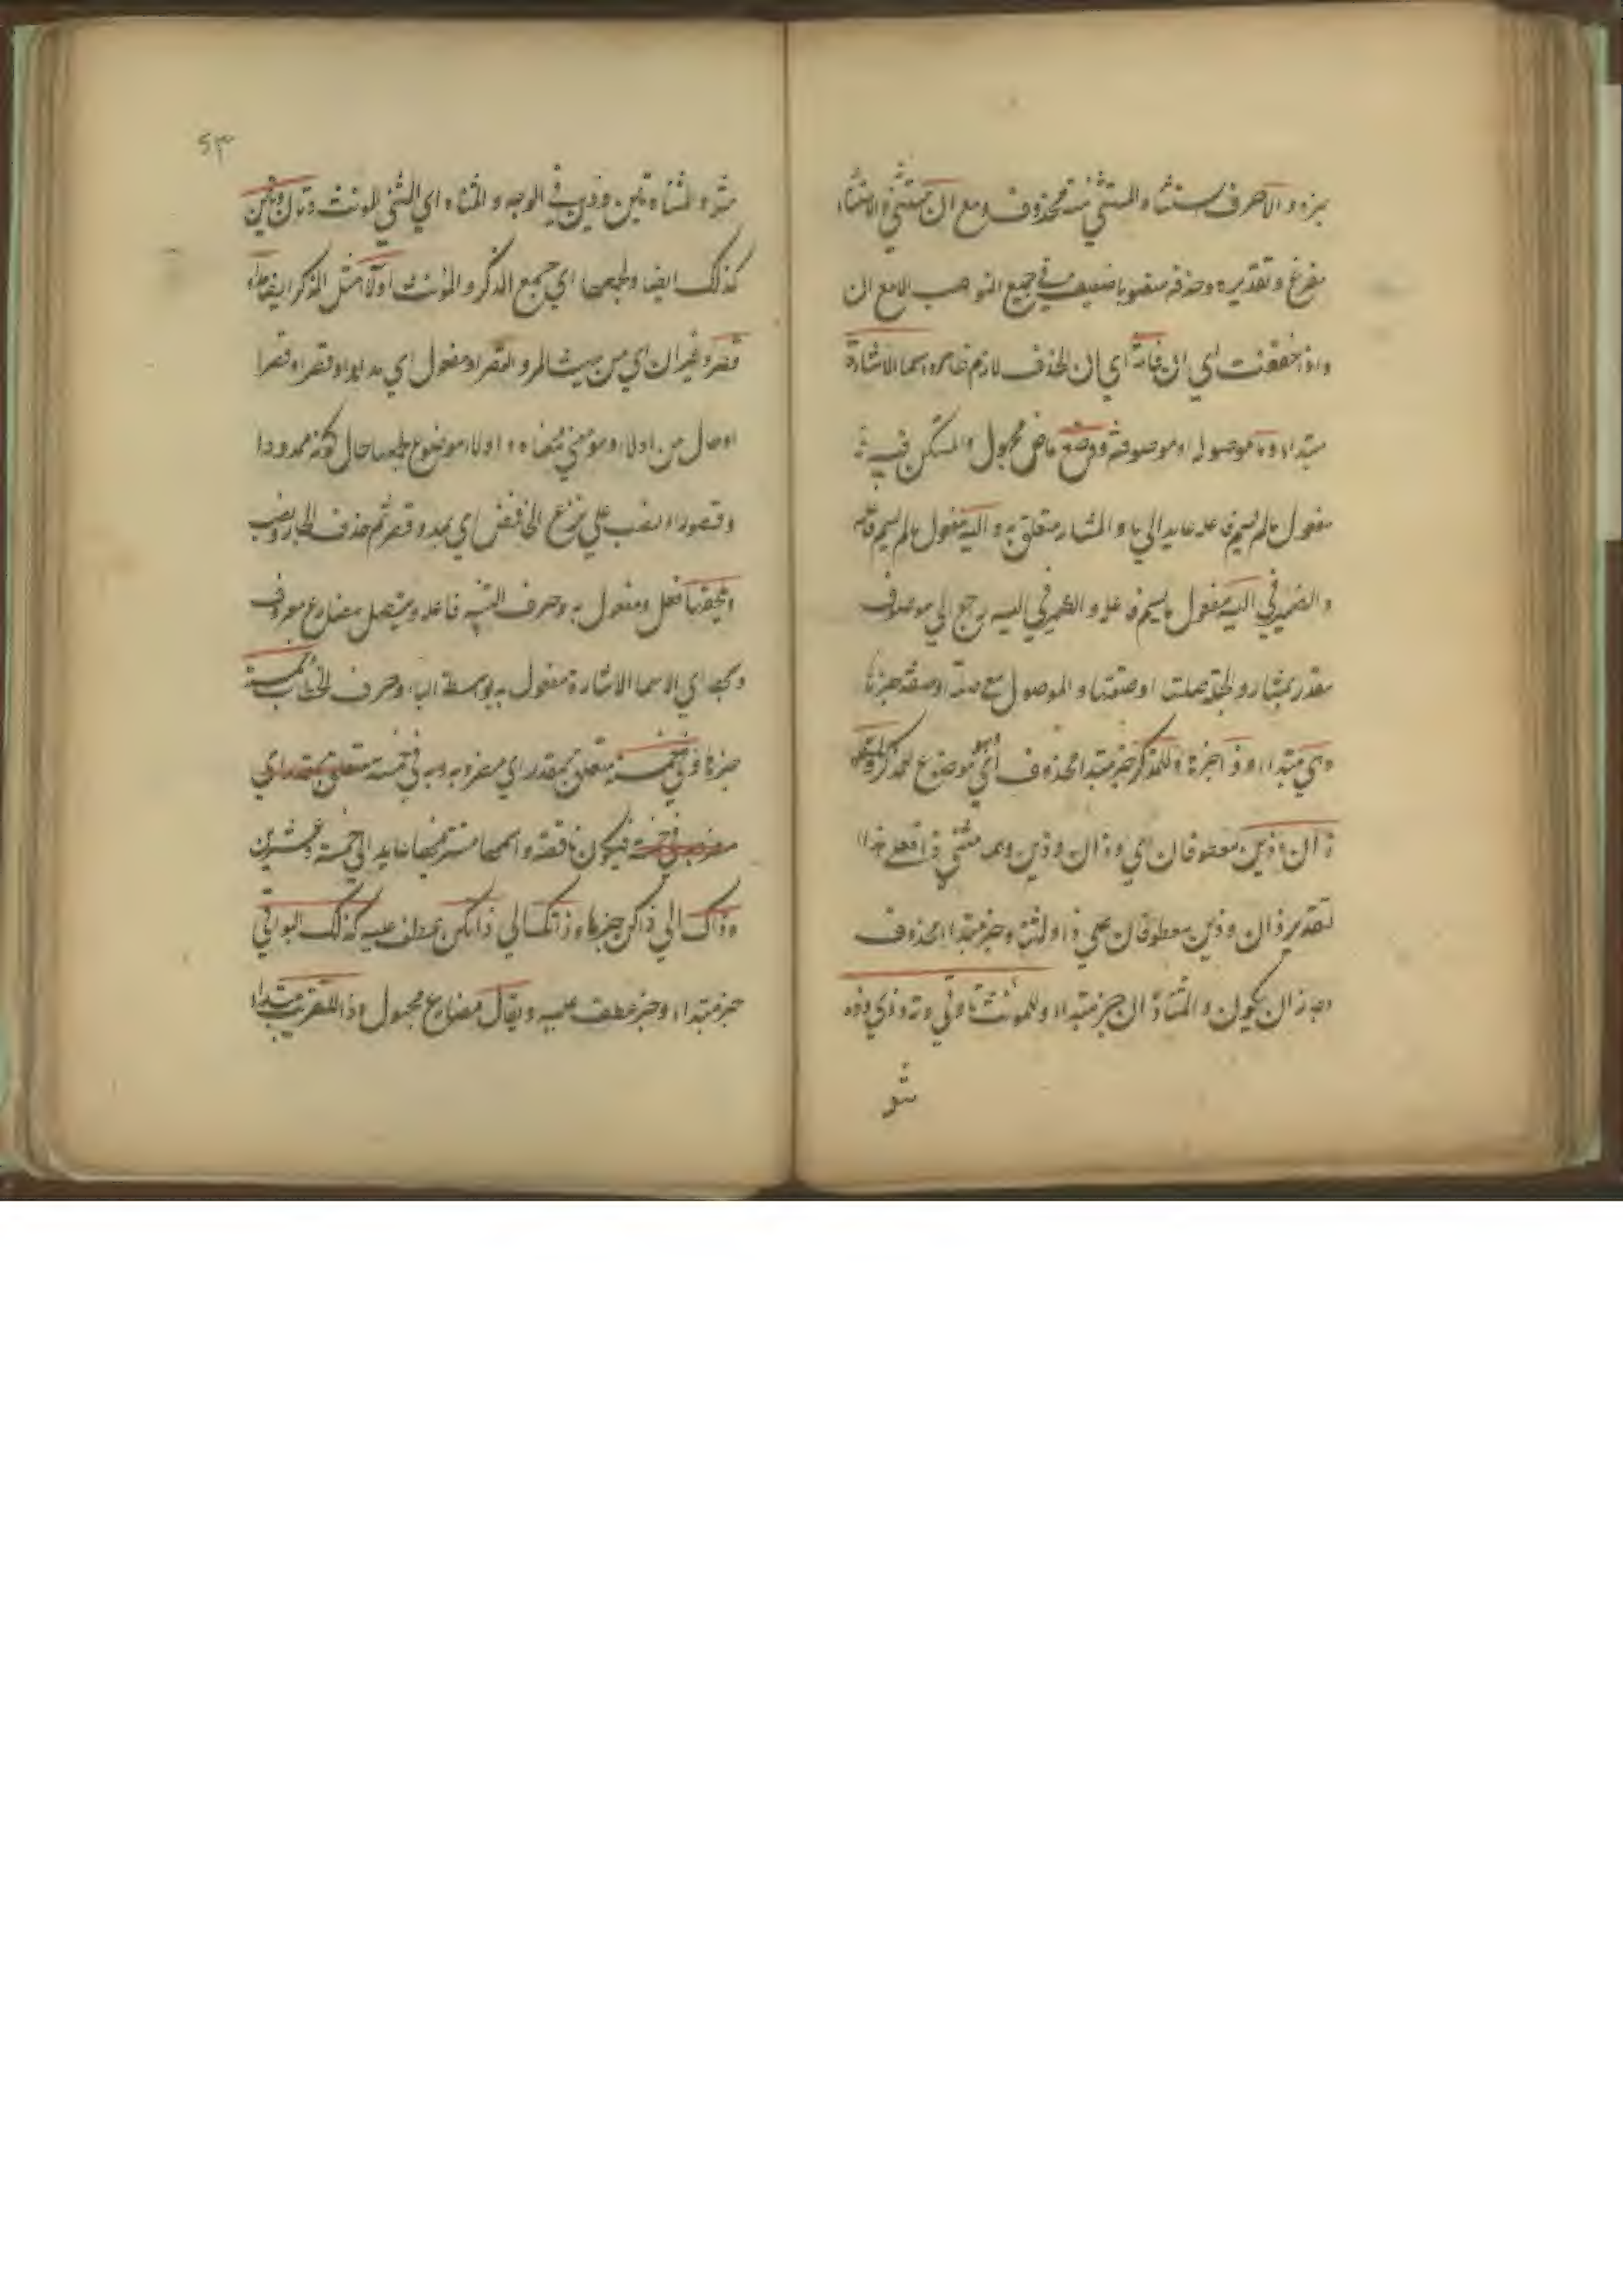 خبره والا حرف استثناء والمستثنى منه محذوف ومع ان مستثنى والاستثناء
مفرغ وتقديره وحذفه منصوبا ضعيف في جميع المواضع الا مع ان
واذا خففت اي ان فانه اي ان الحذف لازم ظاهره اسماء الاشارة
مبتداء وما موصولة او موصوفة وضع ماض مجهول والمستكن فيه
مفعول ما لم يسم فاعله عايد الى ما و لمشار متعلق به واليه مفعول ما لم يسم فاعله
والضمير في اليه مفعول ما يسم فاعله والضمير في اليه يرجع الى موصوف
مقدر بمشار والجملة صلتها او صفتها والموصول مع صلته او صفته خبرها
وهي مبتداء وذا خبرها وللمذكر خبر مبتدا محذوف اي وهو موضوع للمذكر
ذان وذين معطوفان اي وذان وذين وهما مثنى ذا فعلى هذا
تقدير ذان وذين معطوفان على ذا ولمثناه خبر مبتداء محذوف
وجاز ان يكون ولمثناه ان خبر مبتداء وللمؤنث تا وتي وته وذي وذه
مثل
٥٣
مثل ولمثناه تين وذين في الوجه ولمثناه اي المثنى للمونث وتان وتين
كذلك ايضا ولجمعهما اي جمع المذكر والمونث اولاء مثل المذكر ايضا مدا
وقصرا وتميزان اي من حيث المد والقصر او مفعول اي مد مدا وقصر او قصرا
او حال من اولاء ومومعنى معناه و اولاء موضوع لجمعهما حال كونه ممدودا
وقصورا والنصب على نزع الخافض اي بمد وقصر ثم حذف الجار ونصب
ويلحقها فعل ومفعول به وحرف التنبيه فاعله ويتصل مضارع معروف
وبها اي الاسماء الاشارة مفعول به بواسطة الباء وحرف الخطاب خمسة
خبرها وفي خمسة متعلق بمقدر اي مضروبة في خمسة متعلق بمقدر اي
مضروب في خمسة فيكون ناقصة واسمها مستتر فيها عايد الى خمسة وعشرين
وذاك الى ذاكن خبرها و ذانك الى ذانكن عطف عليه كذلك البواقي
خبر مبتداء وخبر عطف عليه ويقال مضارع مجهول وذا للقريب مبتداء